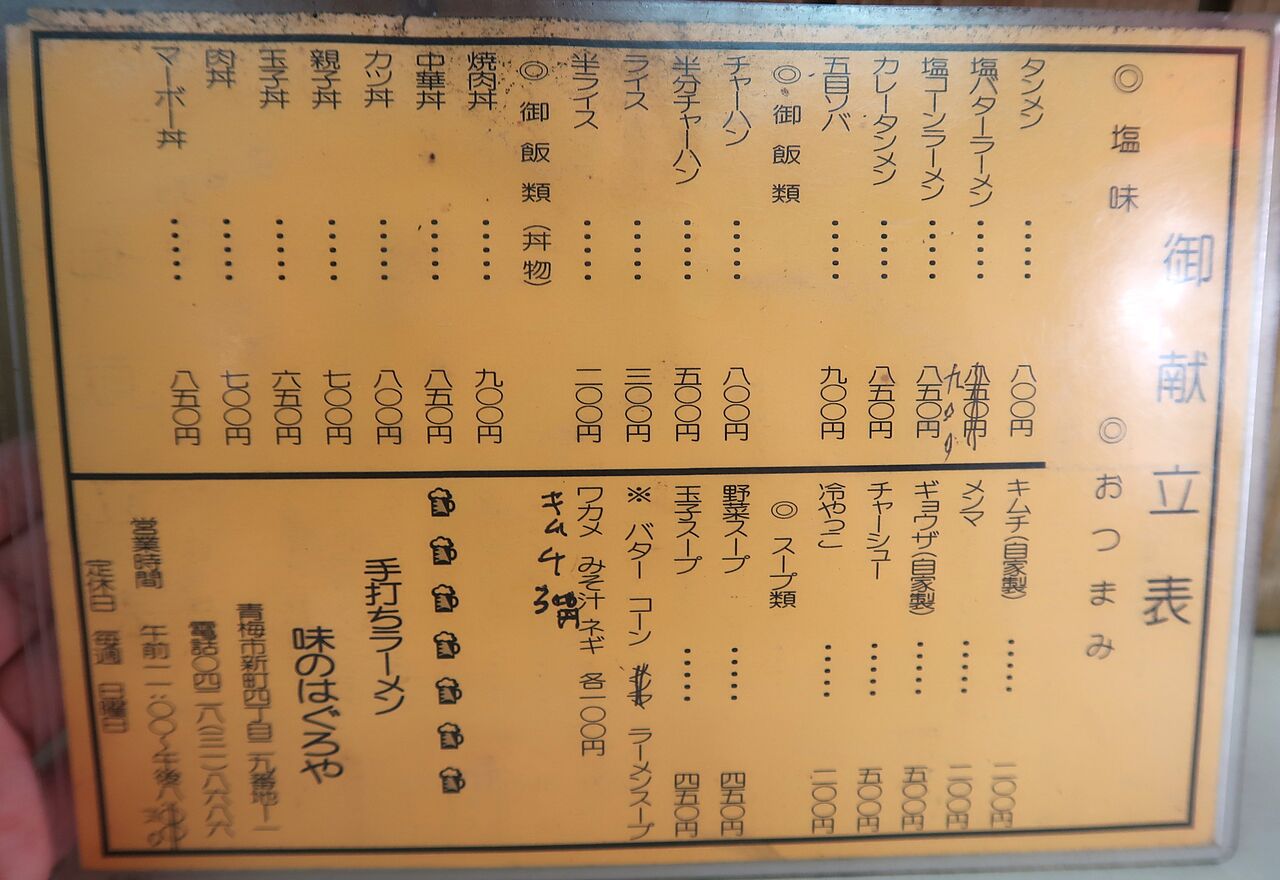 御献立表
◎塩味
タンメン……八〇〇円
塩バターラーメン……八五〇円 九〇〇
塩コーンラーメン……八五〇円
カレータンメン……八五〇円
五目ソバ……九〇〇円
◎御飯類
チャーハン……八〇〇円
半分チャーハン……五〇〇円
ライス……三〇〇円
半ライス……二〇〇円
◎御飯類(丼物)
焼肉丼……九〇〇円
中華丼……八五〇円
カツ丼……八〇〇円
親子丼……七〇〇円
玉子丼……六五〇円
肉丼……七〇〇円
マーボー丼……八五〇円
◎おつまみ
キムチ(自家製)……二〇〇円
メンマ……二〇〇円
ギョウザ(自家製)……五〇〇円
チャーシュー……五〇〇円
冷やっこ……二〇〇円
◎スープ類
野菜スープ……四五〇円
玉子スープ……四五〇円
※ バター コーン ラーメンスープ
ワカメ みそ汁 ネギ 各一〇〇円
キムチ 300円
手打ちラーメン
味のはぐろや
青梅市新町四丁目二九番地一一
電話〇四二八(三一)八六八六
営業時間 午前一一:〇〇〜午後八
定休日 毎週 日曜日